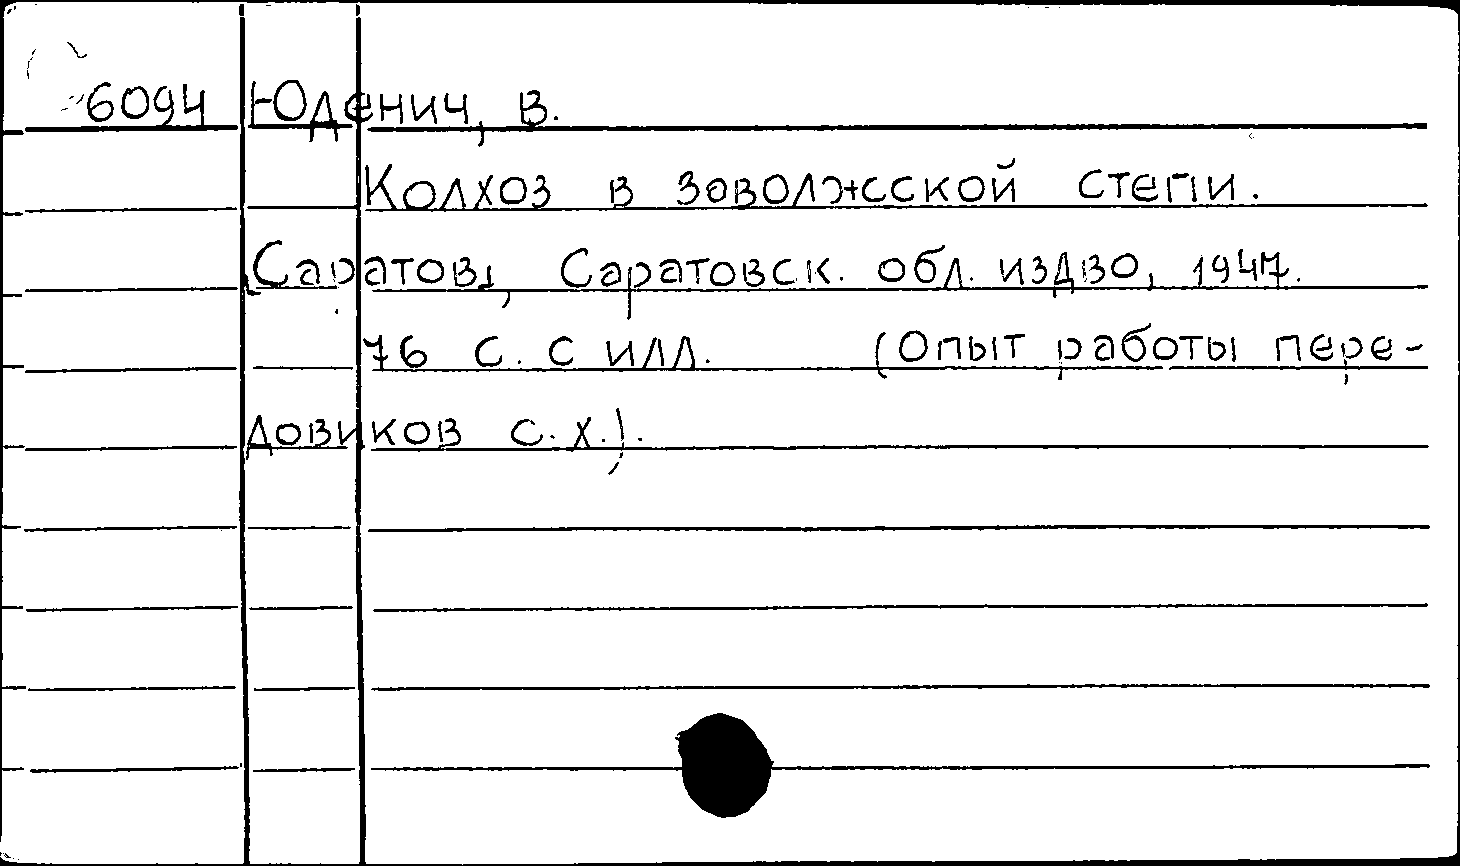 6094 Юденич, В.
Колхоз в заволжсской степи.
[Саратов], Саратовск. обл. издво, 1947.
76 с. с илл. (Опыт работы пере-
довиков с.х.).